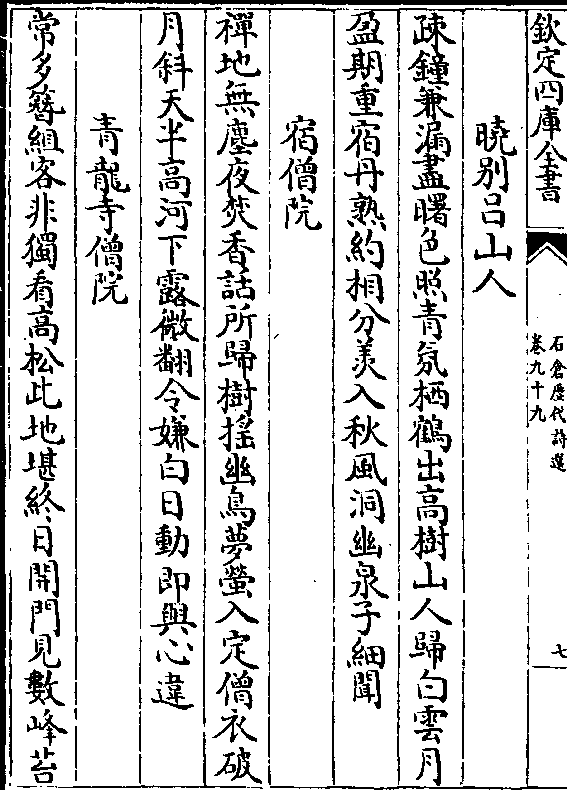 欽定四庫全書
石倉歷代詩選
卷九十九
七
曉別呂山人
疎鐘兼漏盡曙色照青氛栖鶴出高樹山人歸白雲月
盈期重宿丹熟約相分羨入秋風洞幽泉子細聞
宿僧院
禪地無塵夜焚香話所歸樹揺幽鳥夢螢入定僧衣破
月斜天半高河下露微翻令嫌白日動即與心違
青龍寺僧院
常多簪組客非獨看高松此地堪終日開門見數峰苔